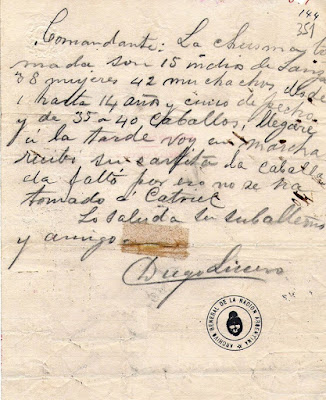 144
351
Comandante: La chusma to
mada son 15 indios de lanza
38 mujeres 42 muchachos desde
1 hasta 14 años y cinco de pecho
y de 35 a 40 caballos, llegaré
á la tarde voy en marcha
recibo su cartita la caballa
da faltó por eso no se ha
tomado a Catriel
Lo saluda su subalterno
y amigo
Diego Lucero
ARCHIVO GENERAL DE LA NACION ARGENTINA